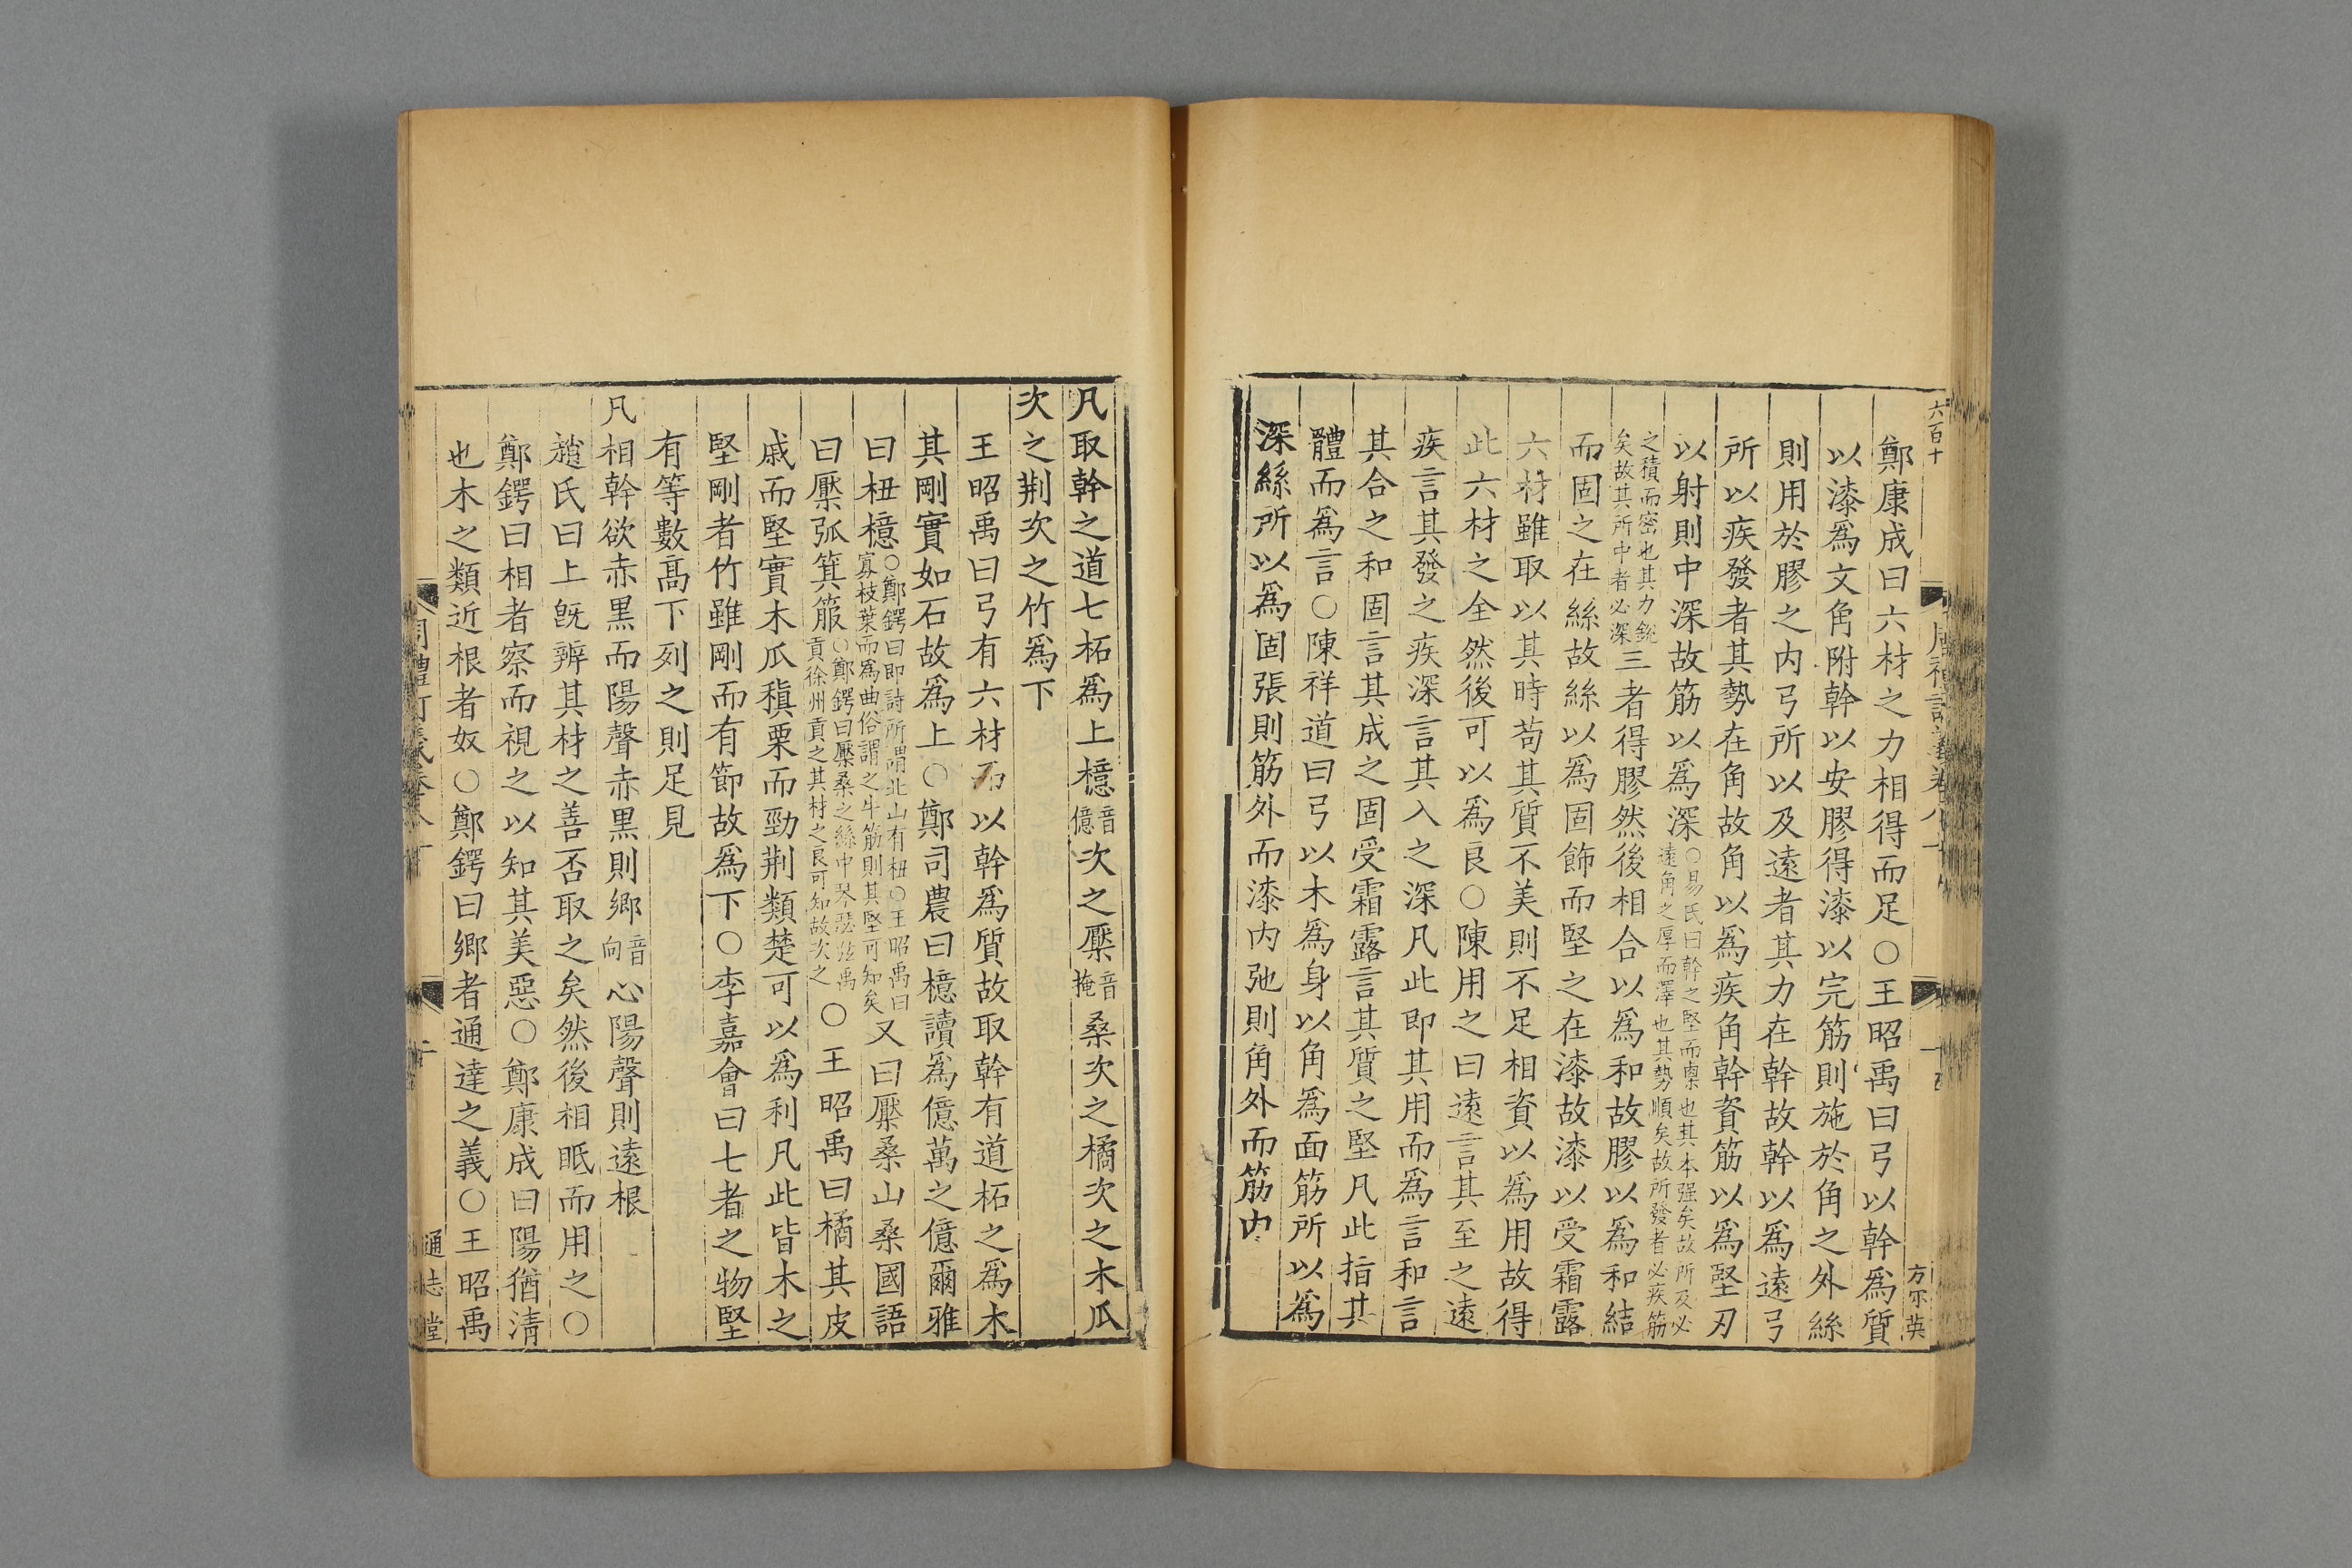 六百十
鄭康成曰六材之力相得而足○王昭禹曰弓以幹爲質
以漆爲文角附幹以安膠得漆以完筋則施於角之外絲
則用於膠之内弓所以及遠者其力在幹故幹以爲遠弓
所以疾發者其勢在角故角以爲疾角幹資筋以爲堅刃
以射則中深故筋以爲深○易氏曰幹之堅而㮚也其本强矣故所及必
遠角之厚而澤也其勢順矣故所發者必疾筋
之積而密也其力銳
矣故其所中者必深三者得膠然後相合以爲和故膠以爲和結
而固之在絲故絲以爲固飾而堅之在漆故漆以受霜露
六材雖取以其時苟其質不美則不足相資以爲用故得
此六材之全然後可以爲良○陳用之曰遠言其至之遠
疾言其發之疾深言其入之深凡此即其用而爲言和言
其合之和固言其成之固受霜露言其質之堅凡此指其
體而爲言○陳祥道曰弓以木爲身以角爲面筋所以爲
深絲所以爲固張則筋外而漆内弛則角外而筋内
凡取幹之道七柘爲上檍音億次之檿音掩桑次之橘次之木瓜
次之荆次之竹爲下
王昭禹曰弓有六材而以幹爲質故取幹有道柘之爲木
其剛實如石故爲上○鄭司農曰檍讀爲億萬之億爾雅
曰杻檍○鄭鍔曰即詩所謂北山有杻○王昭禹曰
寡枝葉而爲曲俗謂之牛筋則其堅可知矣又曰檿桑山桑國語
曰檿弧箕箙○鄭鍔曰檿桑之絲中琴瑟弦禹
貢徐州貢之其材之良可知故次之○王昭禹曰橘其皮
戚而堅實木瓜稹栗而勁荆類楚可以爲利凡此皆木之
堅剛者竹雖剛而有節故爲下○李嘉會曰七者之物堅
有等數髙下列之則足見
凡相幹欲赤黒而陽聲赤黒則郷音向心陽聲則遠根
趙氏曰上旣辨其材之善否取之矣然後相眡而用之○
鄭鍔曰相者察而視之以知其美惡○鄭康成曰陽猶清
也木之類近根者奴○鄭鍔曰郷者通達之義○王昭禹
通志堂